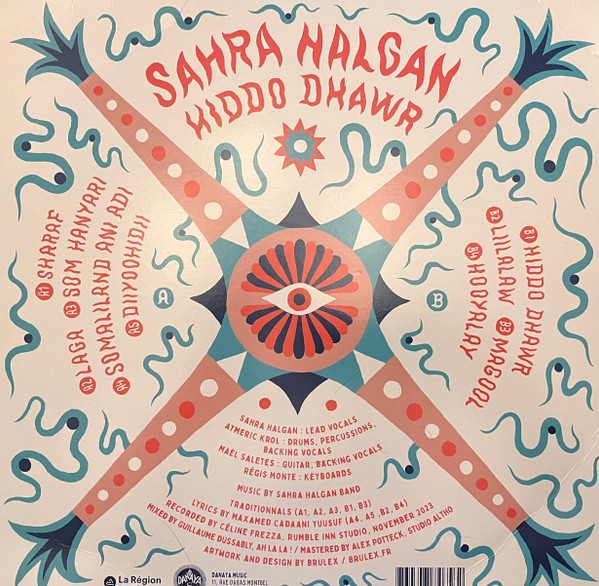 SAHRA HALGAN
HIDDO DHAWR
A1 SHARAF
A2 LAGA A3 SOM HANYARI
A4 SOMALILAND ANI ADI
A5 DIIYOOHIDII
A
B
B1 HIDDO DHAWR
B2 LIILALAW B3 MAGOOL
B4 HOBALAY
SAHRA HALGAN : LEAD VOCALS
AYMERIC KROL : DRUMS, PERCUSSIONS,
BACKING VOCALS
MAEL SALETES : GUITAR, BACKING VOCALS
RÉGIS MONTE : KEYBOARDS
MUSIC BY SAHRA HALGAN BAND
TRADITIONNALS (A1, A2, A3, B1, B3)
LYRICS BY MAXAMED CADAANI YUUSUF (A4, A5 ,B2, B4)
RECORDED BY CÉLINE FREZZA, RUMBLE INN STUDIO, NOVEMBER 2023
MIXED BY GUILLAUME DUSSABLY, AH LA LA ! / MASTERED BY ALEX POTTECK, STUDIO ALTHO
ARTWORK AND DESIGN BY BRULEX / BRULEX.FR
La Région
DANAYA
DANAYA MUSIC
11, RUE DUGAS MONTBEL